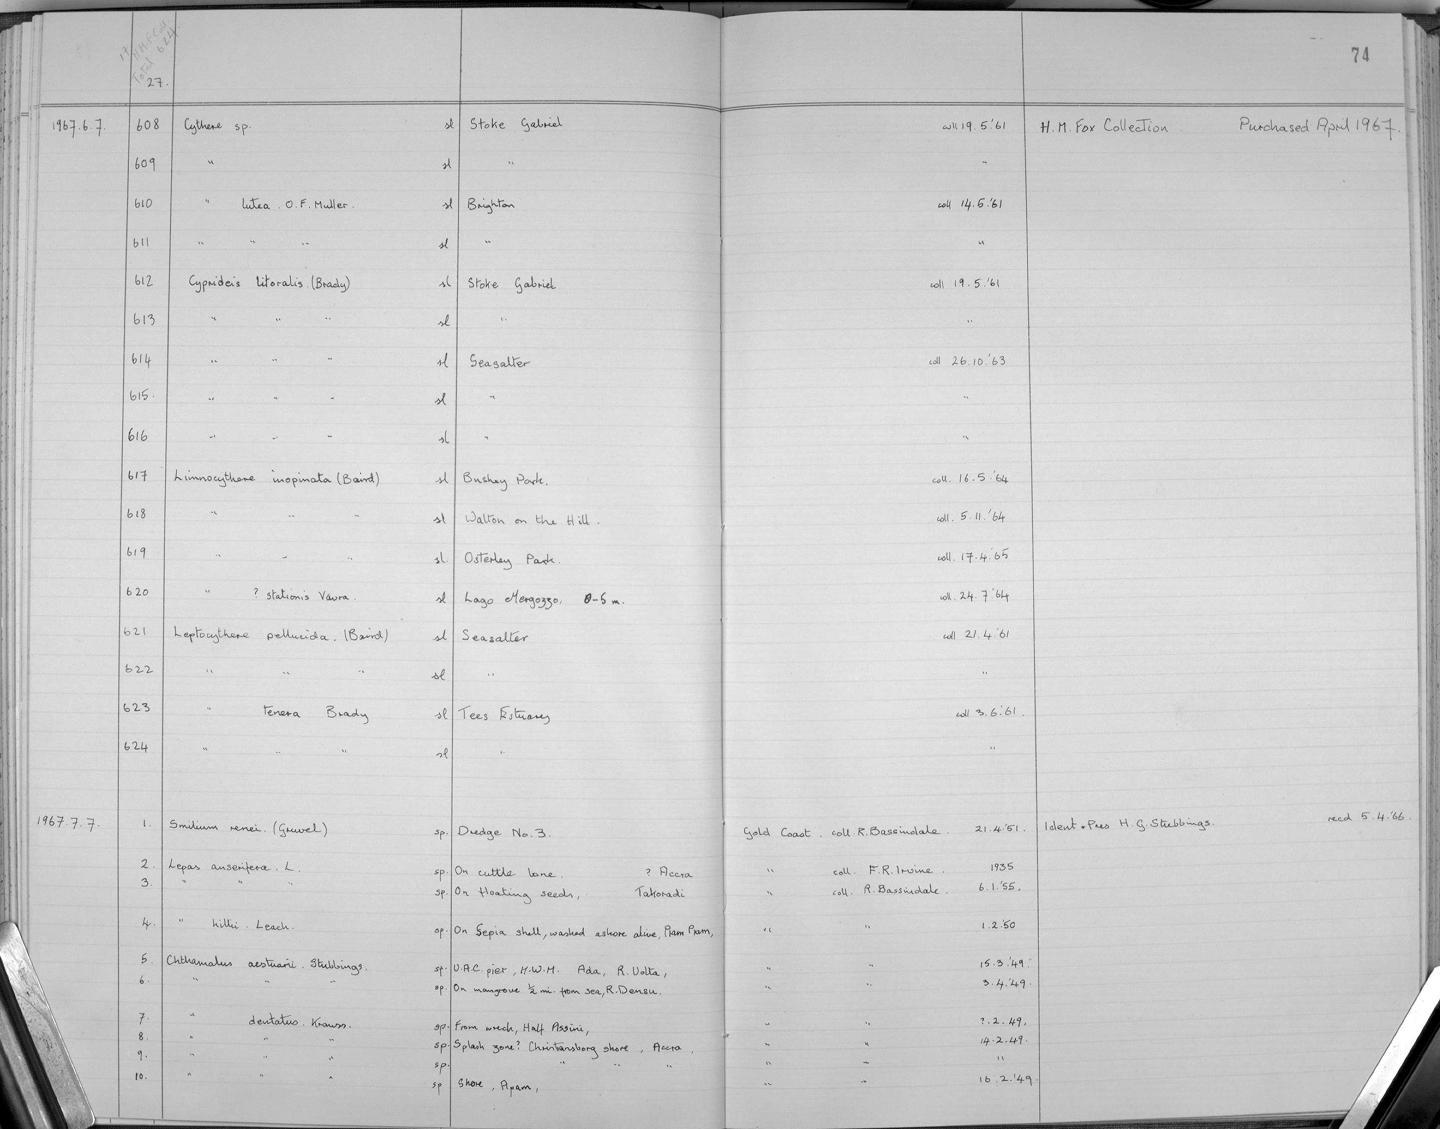 19
H.M.F. Coll
Total 624.
27.
74
1967.6.7. 608 Cythere sp. sl Stoke Gabriel coll 19.5.'61 H.M. Fox Collection Purchased April 1967.
609 " sl " "
610 " lutea. O.F. Muller. sl Brighton coll 14.5.'61
611 " " " sl " "
612 Cyprideis litoralis (Brady) sl Stoke Gabriel coll 19.5.'61
613 " " " sl " "
614 " " " sl Seasalter coll 26.10.'63
615. " " " sl " "
616 " " " sl " "
617 Limnocythere inopinata (Baird) sl Bushey Park. coll. 16.5.'64
618 " " " sl Walton on the Hill. coll. 5.11.'64
619 " " " sl Osterley Park. coll. 17.4.'65
620 " ? stationis Vavra. sl Lago Mergozzo, 0-5 m. coll. 24.7.'64
621 Leptocythere pellucida. (Baird) sl Seasalter coll 21.4.'61
622 " " " sl " "
623 " tenera Brady sl Tees Estuary coll 3.6.'61.
624 " " " sl " "
1967.7.7. 1. Smilium renei. (Gruvel) sp. Dredge No.3. Gold Coast. coll. R. Bassindale. 21.4.'51. Ident + Pres H.G. Stubbings. recd 5.4.'66.
2. Lepas anserifera. L. sp. On cuttle bone. ? Accra " coll. F.R. Irvine. 1935
3. " " " sp. On floating seeds, Takoradi " coll. R. Bassindale. 6.1.'55.
4. " hillii. Leach. sp. On Sepia shell, washed ashore alive, Pram Pram, " " 1.2.'50
5. Chthamalus aestuarii. Stubbings. sp. U.A.C. pier, H.W.M. Ada, R. Volta, " " 15.3.'49.
6. " " " sp. On mangrove ½ mi. from sea, R. Densu. " " 3.4.'49.
7. " dentatus. Krauss. sp. From wreck, Half Assini, " " ?.2.49.
8. " " " sp. Splash zone? Christansborg shore, Accra, " " 14.2.49.
9. " " " sp. " " " " " "
10. " " " sp Shore, Apam, " " 16.2.'49.